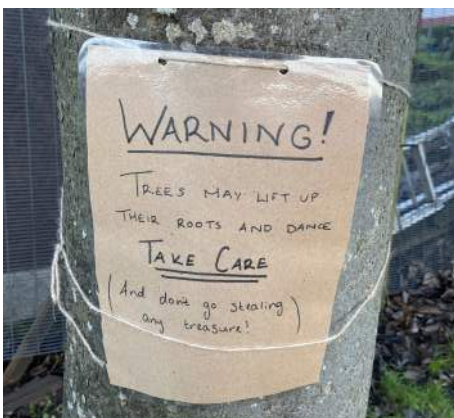 WARNING!
TREES MAY LIFT UP
THEIR ROOTS AND DANCE
TAKE CARE
(And don't go stealing
any treasure!)